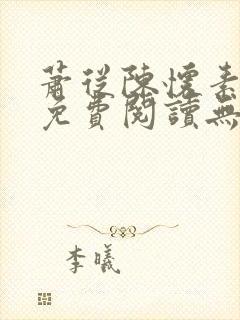 蕭從陳懷素
免費閱讀無
李曦